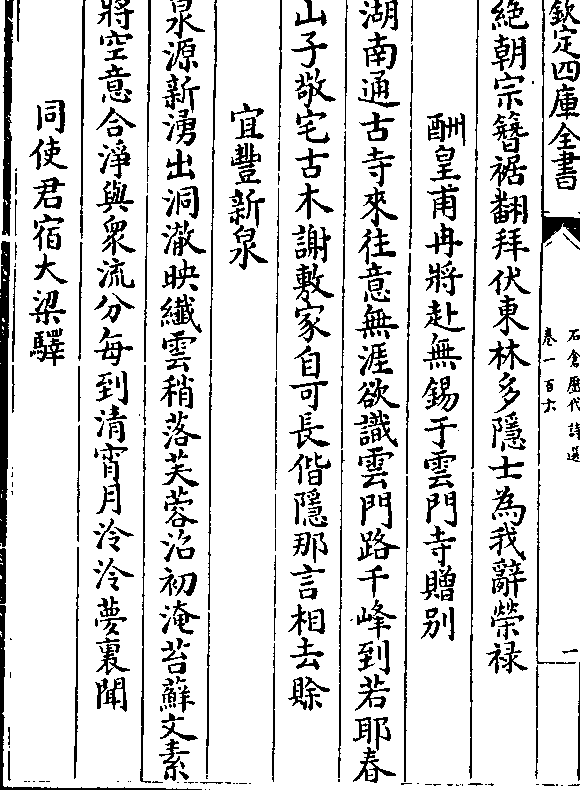 欽定四庫全書
石倉歷代詩選
卷一百六
一
絶朝宗簮裾翻拜伏東林多隱士為我辭榮禄
酬皇甫冉將赴無錫于雲門寺贈别
湖南通古寺來往意無涯欲識雲門路千峰到若耶春
山子敬宅古木謝敷家自可長偕隱那言相去賖
宜豐新泉
泉源新湧出洞澈映纎雲稍落芙蓉沼初淹苔蘚文素
將空意合淨與衆流分每到清宵月泠泠夢裏聞
同使君宿大梁驛